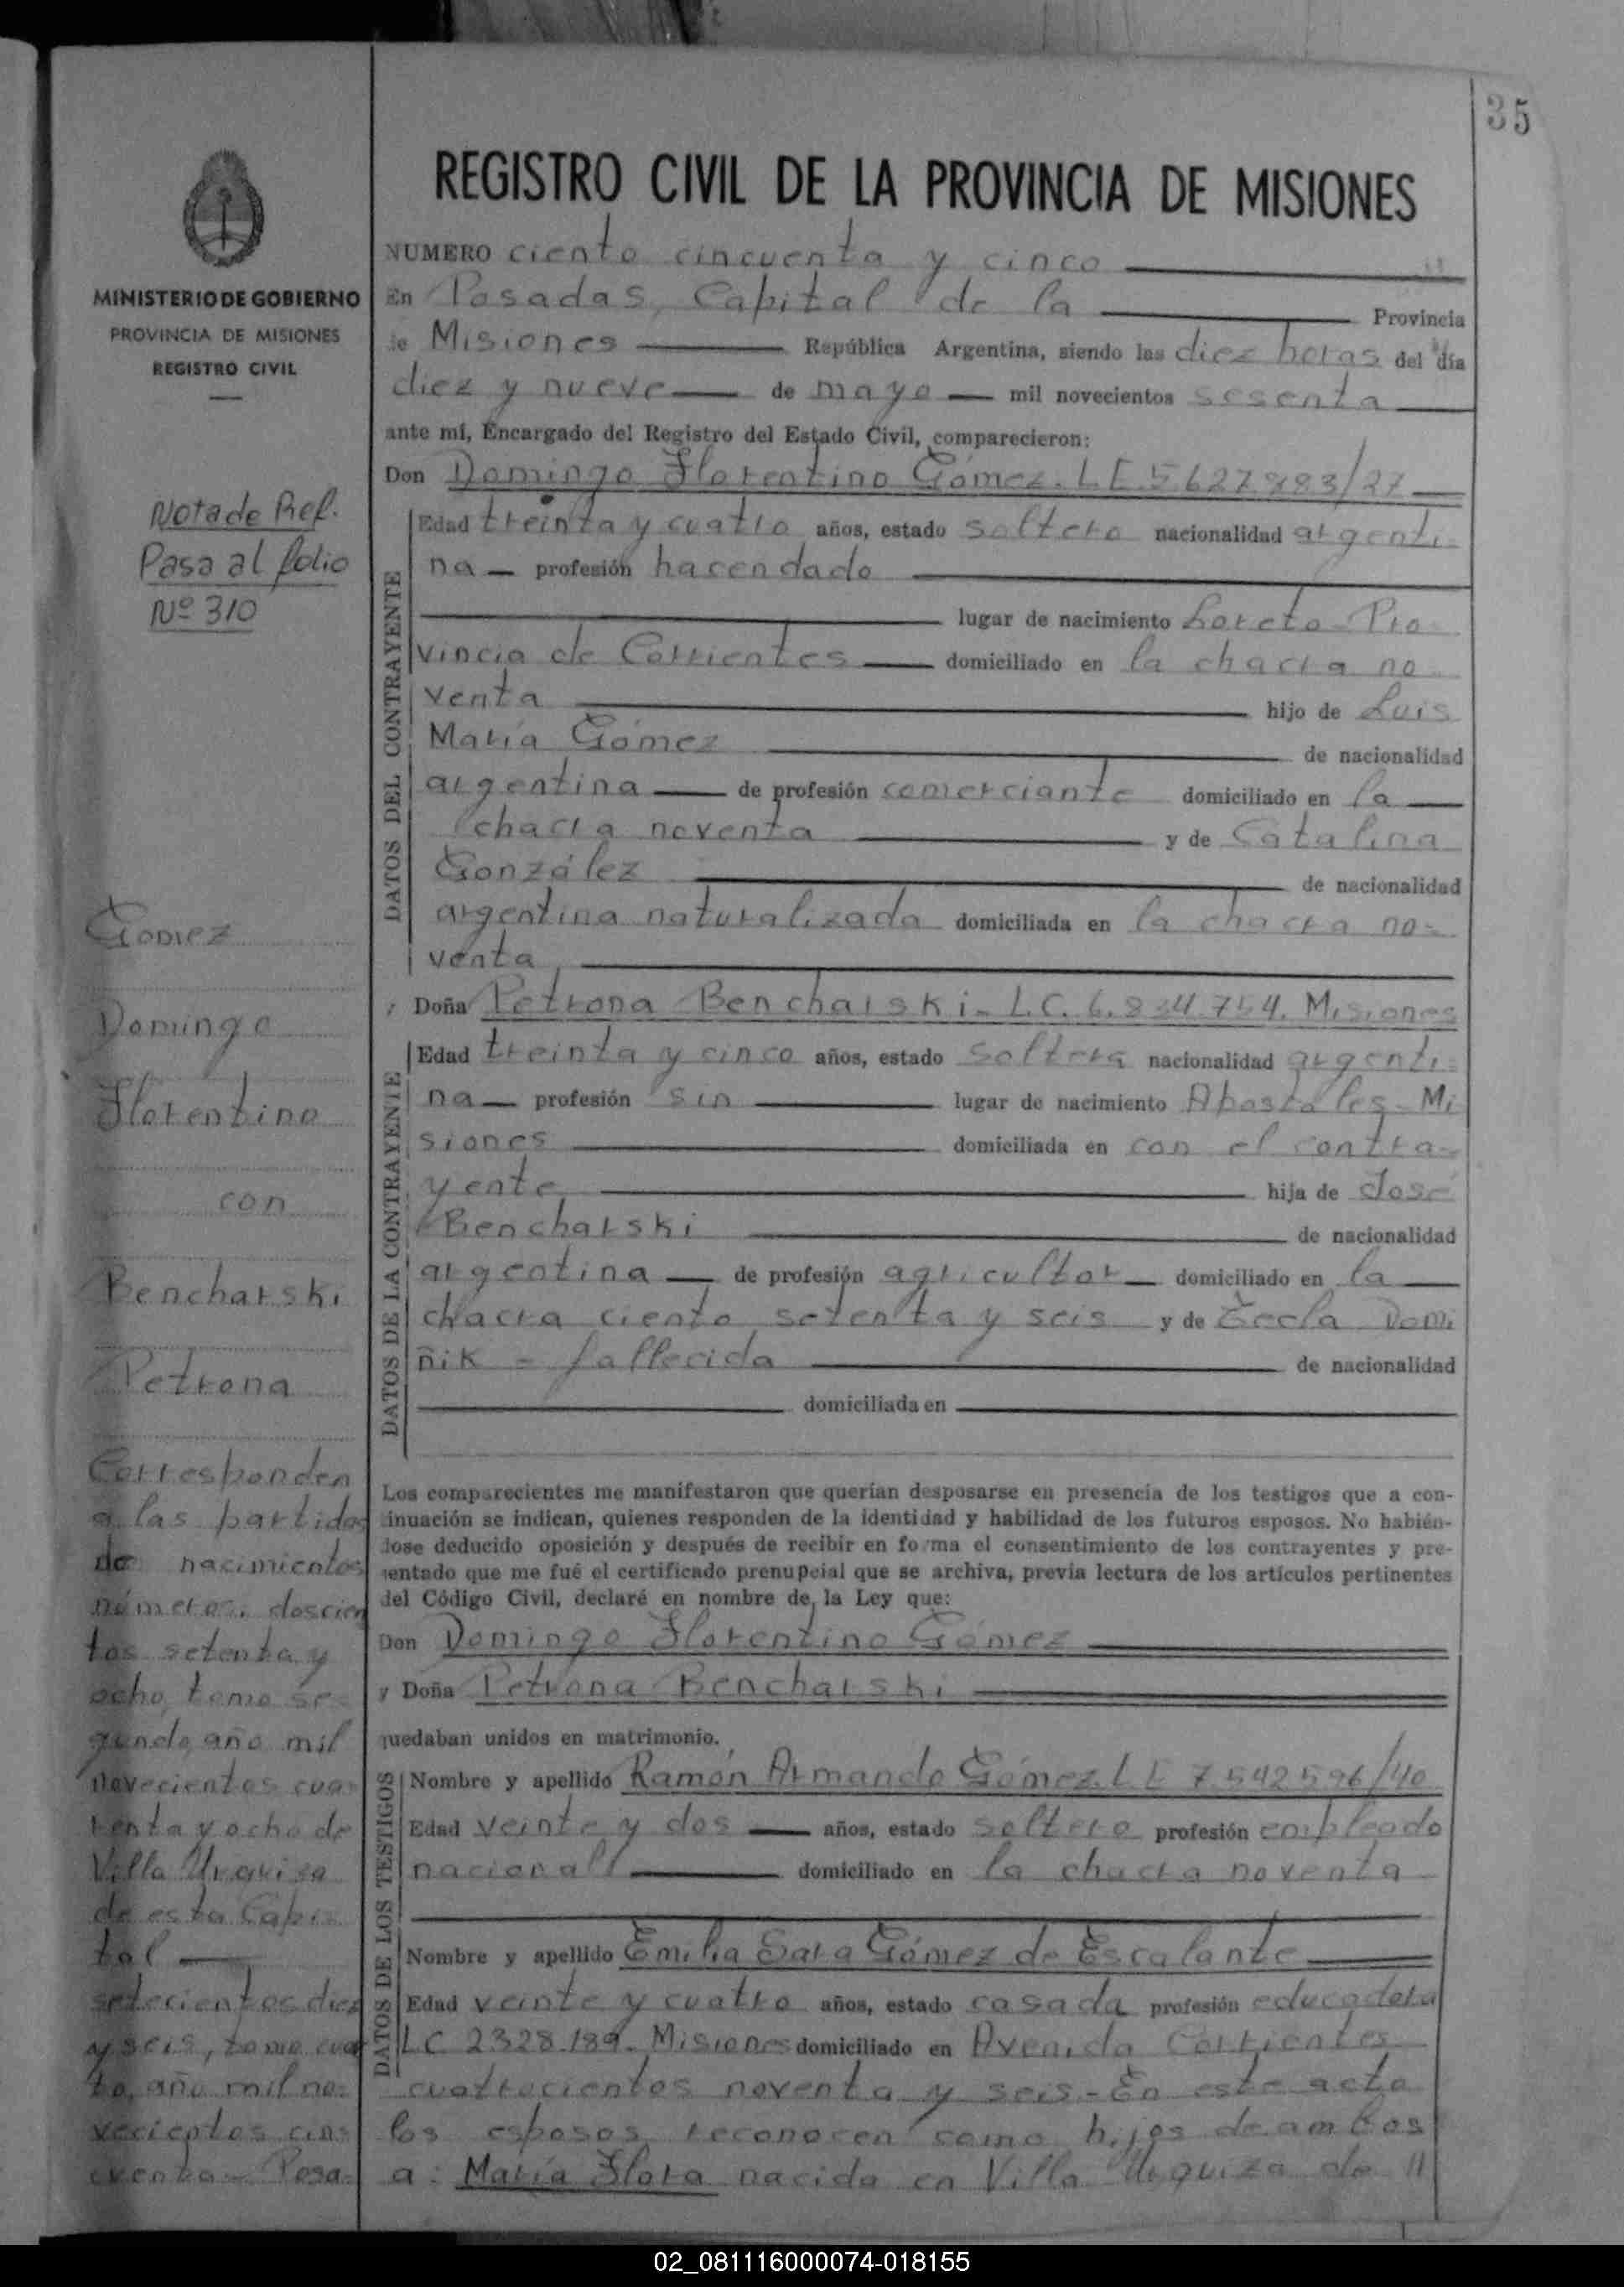 35
REGISTRO CIVIL DE LA PROVINCIA DE MISIONES
MINISTERIO DE GOBIERNO
PROVINCIA DE MISIONES
REGISTRO CIVIL
Nota de Ref.
Pasa al folio
Nº 310
Gomez
Domingo
Florentino
con
Bencharski
Petrona
Corresponden
a las partidas
de nacimientos
números: doscien
tos setenta y
ocho, tomo se
gundo, año mil
novecientos cua-
renta y ocho de
Villa Urquiza
de esta Capi-
tal
setecientos diez
y seis, tomo cuar
to, año mil no-
vecientos cin-
cuenta - Posa-
NUMERO ciento cincuenta y cinco
En Posadas, Capital de la Provincia
de Misiones República Argentina, siendo las diez horas del día
diez y nueve de mayo mil novecientos sesenta
ante mí, Encargado del Registro del Estado Civil, comparecieron:
Don Domingo Florentino Gómez. LE 5627883/27
DATOS DEL CONTRAYENTE
Edad treinta y cuatro años, estado soltero nacionalidad argenti-
na profesión hacendado
lugar de nacimiento Loreto Pro-
vincia de Corrientes domiciliado en la chacra no
venta hijo de Luis
María Gómez de nacionalidad
argentina de profesión comerciante domiciliado en la
chacra noventa y de Catalina
González de nacionalidad
argentina naturalizada domiciliada en la chacra no-
venta
y Doña Petrona Bencharski. L.C. 6.834.754. Misiones
DATOS DE LA CONTRAYENTE
Edad treinta y cinco años, estado soltera nacionalidad argenti-
na profesión sin lugar de nacimiento Apostoles - Mi
siones domiciliada en con el contra-
yente hija de José
Bencharski de nacionalidad
argentina de profesión agricultor domiciliado en la
chacra ciento setenta y seis y de Tecla Domi
ñik = fallecida de nacionalidad
domiciliada en
Los comparecientes me manifestaron que querían desposarse en presencia de los testigos que a con-
tinuación se indican, quienes responden de la identidad y habilidad de los futuros esposos. No habién-
dose deducido oposición y después de recibir en forma el consentimiento de los contrayentes y pre-
sentado que me fué el certificado prenupcial que se archiva, previa lectura de los artículos pertinentes
del Código Civil, declaré en nombre de la Ley que:
Don Domingo Florentino Gómez
y Doña Petrona Bencharski
quedaban unidos en matrimonio.
DATOS DE LOS TESTIGOS
Nombre y apellido Ramón Armando Gómez. LE 7.542.596/40
Edad veinte y dos años, estado soltero profesión empleado
nacional domiciliado en la chacra noventa
Nombre y apellido Emilia Sara Gómez de Escalante
Edad veinte y cuatro años, estado casada profesión educadora
LC 2328.189. Misiones domiciliado en Avenida Corrientes
cuatrocientos noventa y seis.- En este acto
los esposos reconocen como hijos de ambos
a: María Flora nacida en Villa Urquiza de
02_081116000074-018155